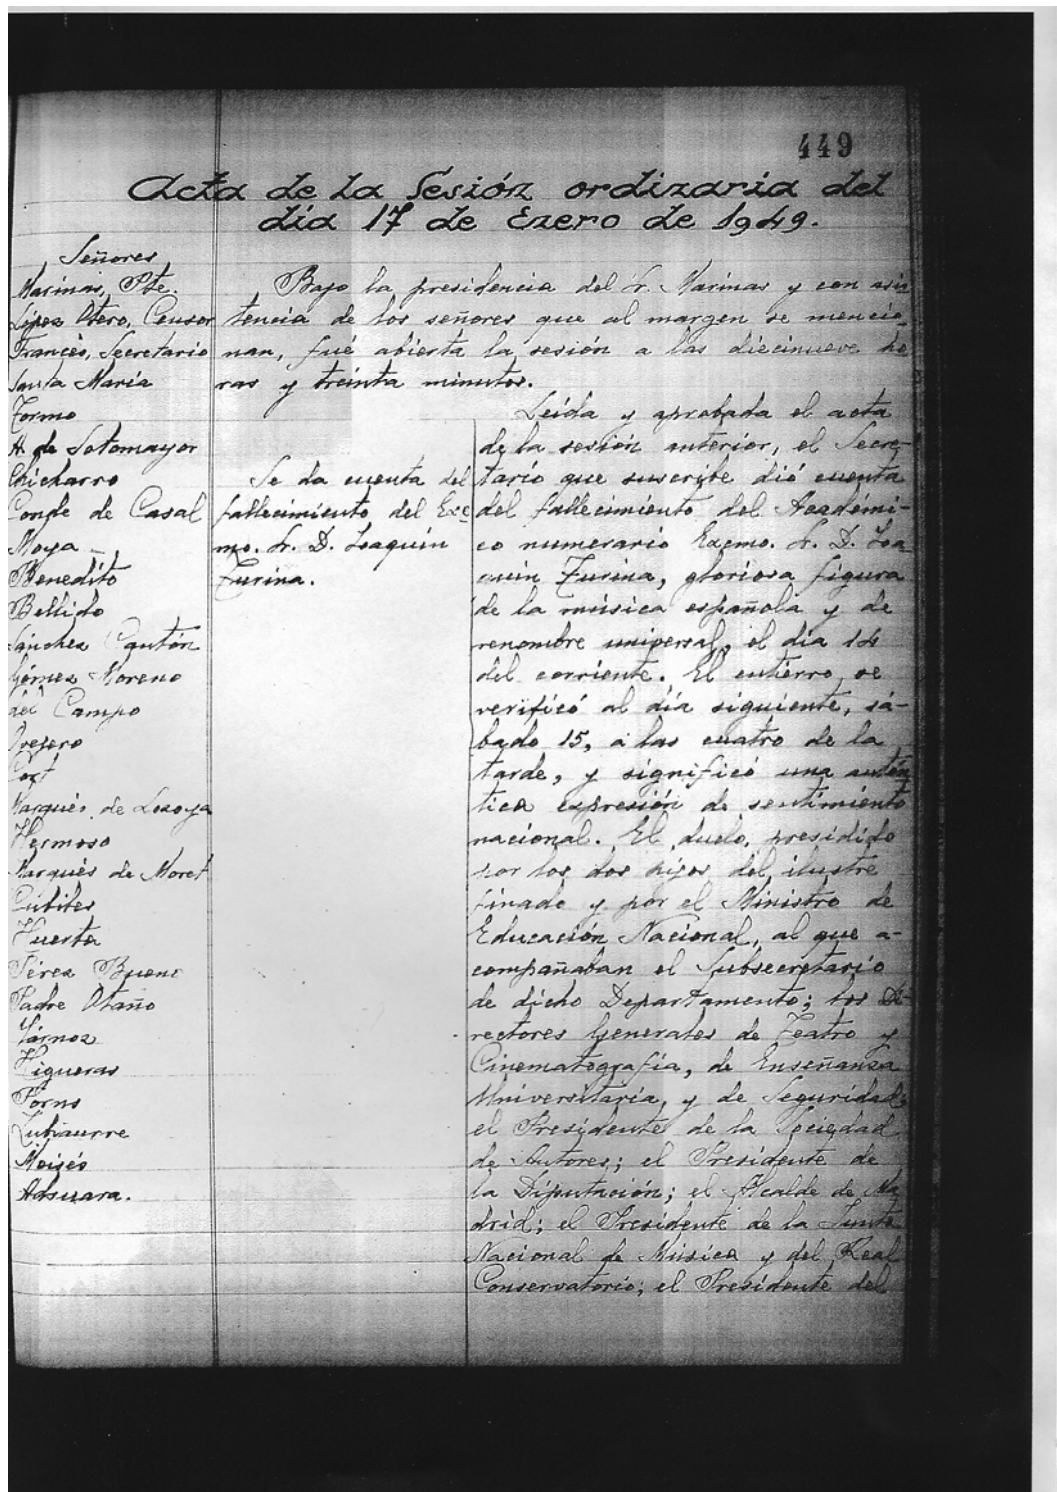 449
Acta de la Sesión ordinaria del
día 17 de Enero de 1949.
Señores
Marinas, Pte.
López Otero, Censor
Francés, Secretario
Santa María
Tormo
A. de Sotomayor
Chicharro
Conde de Casal
Moya
Benedito
Bellido
Sánchez Cantón
Gómez Moreno
del Campo
Cort
Marqués de Lozoya
Hermoso
Marqués de Moret
Cubiles
Huerta
Pérez Bueno
Padre Otaño
Yárnoz
Higueras
Forns
Zubiaurre
Moisés
Adsuara.
Bajo la presidencia del Sr. Marinas y con asis
tencia de los señores que al margen se mencio-
nan, fué abierta la sesión a las diecinueve ho
ras y treinta minutos.
Se da cuenta del
fallecimiento del Exc
mo. Sr. D. Joaquín
Turina.
Leída y aprobada el acta
de la sesión anterior, el Secre-
tario que suscribe dió cuenta
del fallecimiento del Académi-
co numerario Excmo. Sr. D. Joa
quín Turina, gloriosa figura
de la música española y de
renombre universal, el día 14
del corriente. El entierro se
verificó al día siguiente, sá-
bado 15, a las cuatro de la
tarde, y significó una autén
tica expresión de sentimiento
nacional. El duelo, presidido
por los dos hijos del ilustre
finado y por el Ministro de
Educación Nacional, al que a-
compañaban el Subsecretario
de dicho Departamento; los Di-
rectores Generales de Teatro y
Cinematografía, de Enseñanza
Universitaria, y de Seguridad;
el Presidente de la Sociedad
de Autores; el Presidente de
la Diputación; el Alcalde de Ma
drid; el Presidente de la Junta
Nacional de Música y del Real
Conservatorio; el Presidente del